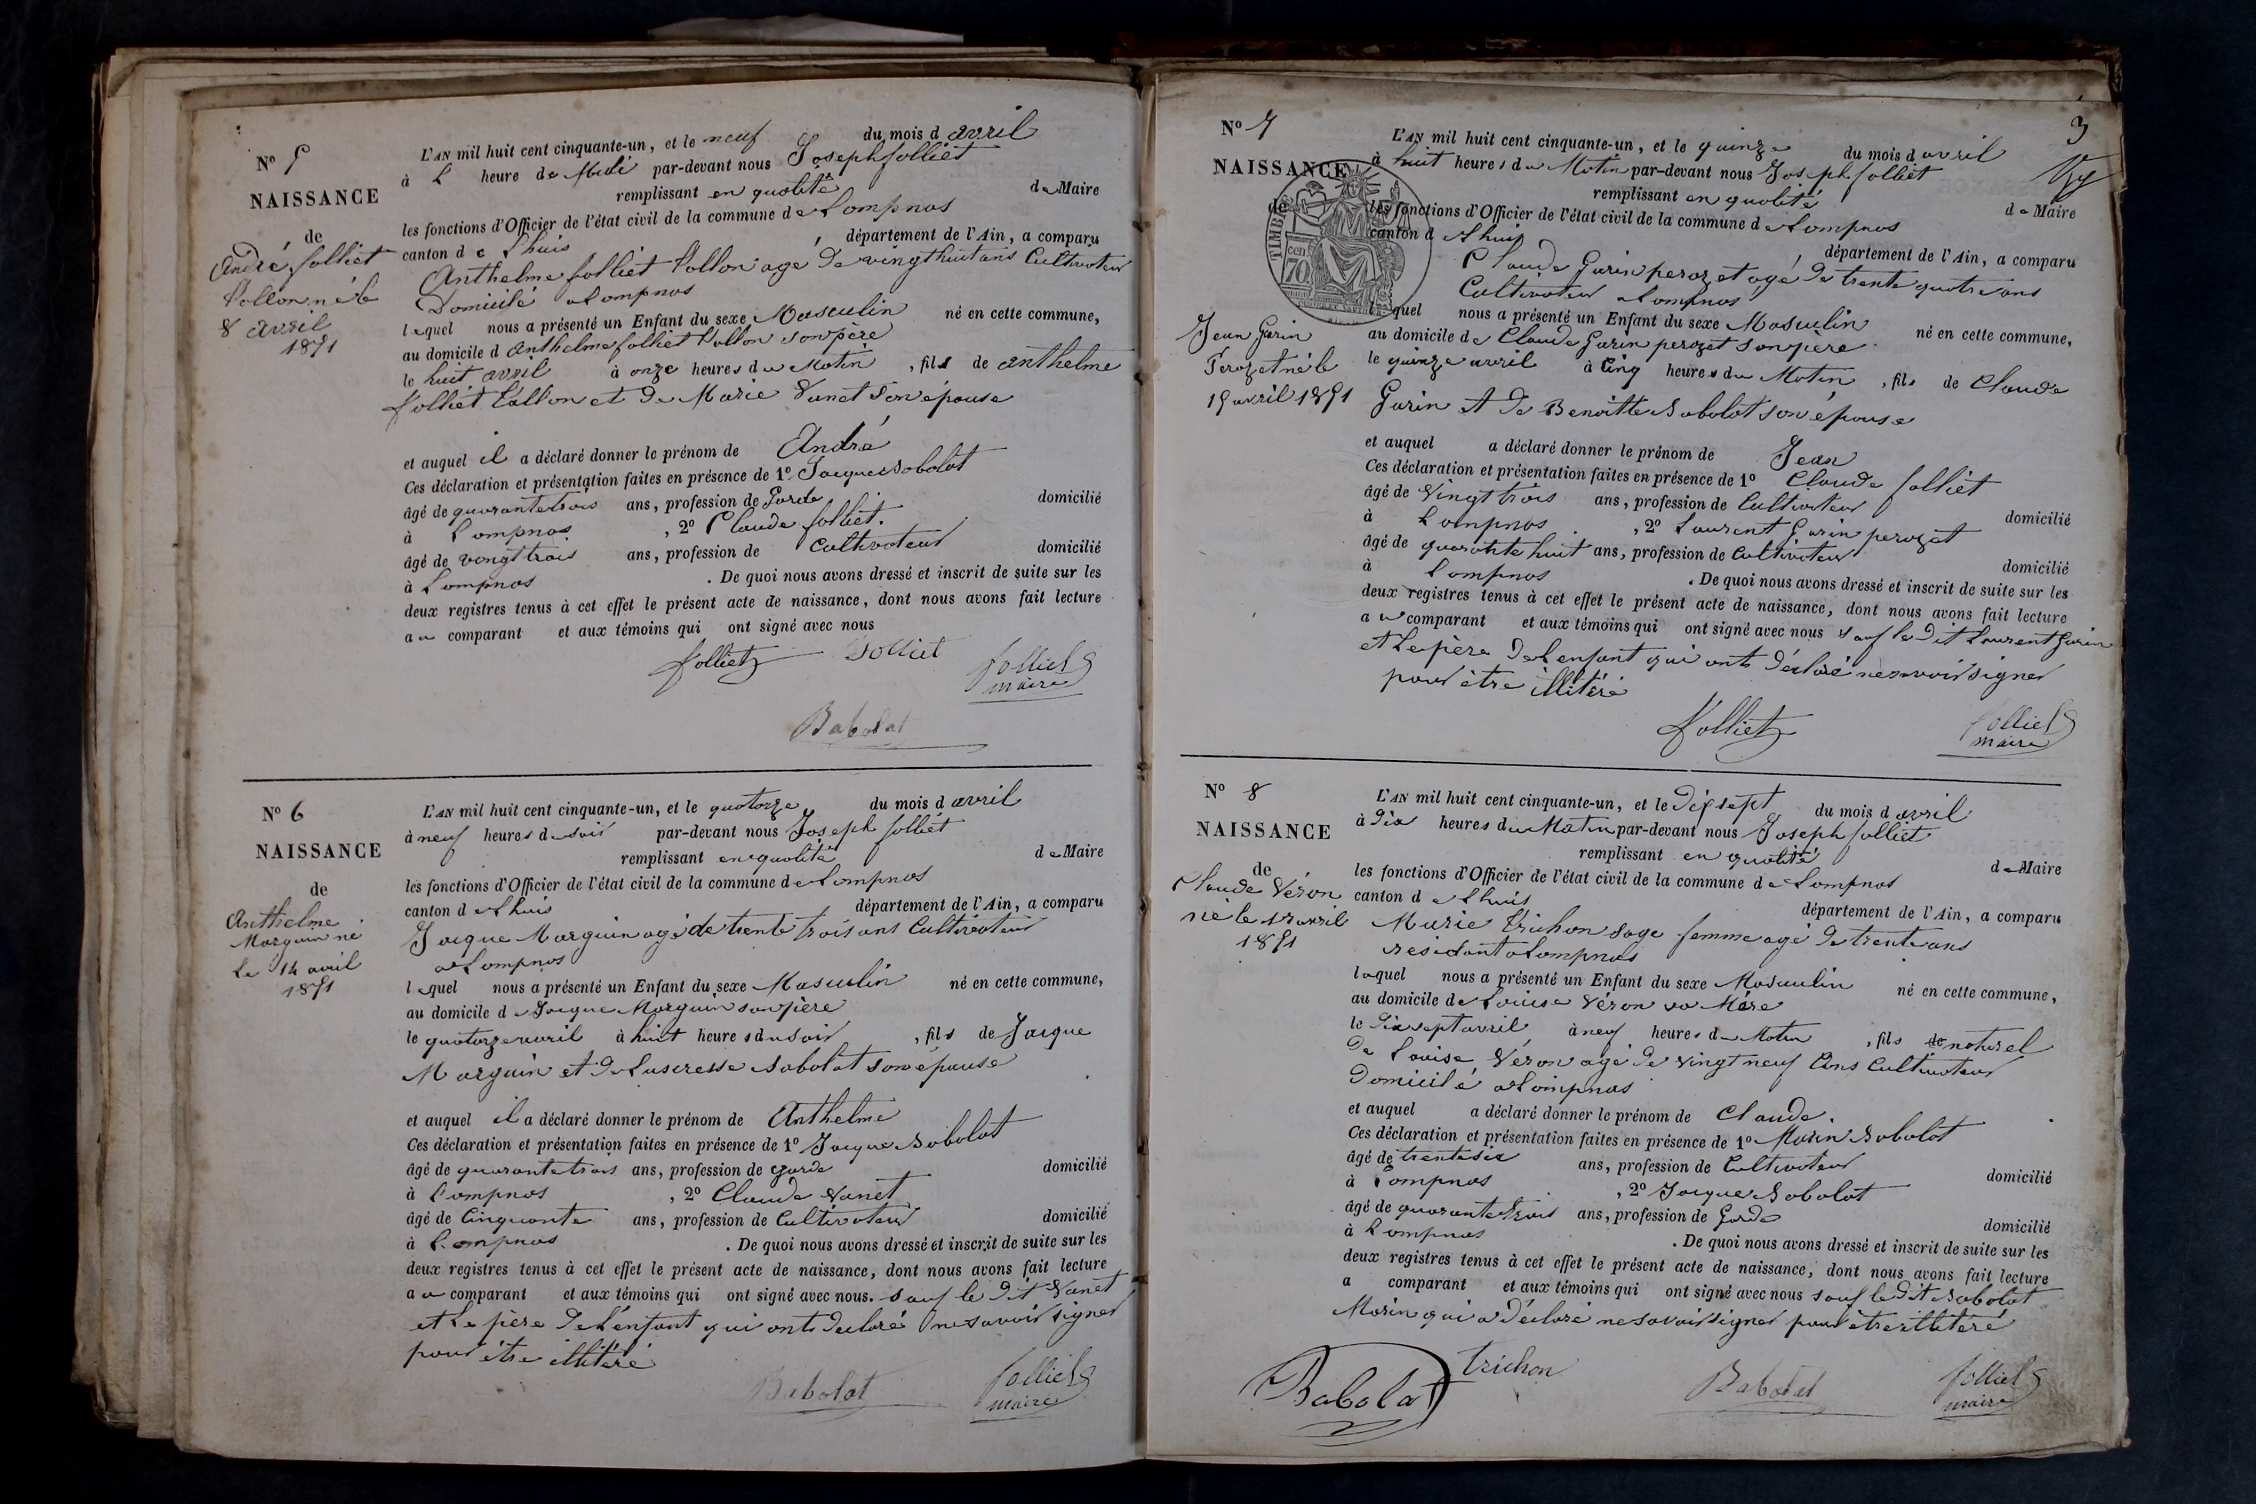 N° 5
NAISSANCE
de
André folliet
Vollon né le
8 avril
1851
L'AN mil huit cent cinquante-un, et le neuf du mois d avril
à 1 heure de Midi par-devant nous Joseph folliet
remplissant en qualité de Maire
les fonctions d'Officier de l'état civil de la commune de Lompnas
canton de Lhuis département de l'Ain, a comparu
Anthelme folliet Vollon agé de vingt huit ans Cultivateur
Domicilé a Lompnas
lequel nous a présenté un Enfant du sexe Masculin né en cette commune,
au domicile d Anthelme folliet Vollon son père
le huit avril à onze heures du Matin, fils de anthelme
folliet Vollon et de Marie Vanet son épouse
et auquel il a déclaré donner le prénom de André
Ces déclaration et présentation faites en présence de 1° Jacques Babolat
âgé de quarante trois ans, profession de Garde domicilié
à Lompnas, 2° Claude folliet.
âgé de vingt trois ans, profession de Cultivateur domicilié
à Lompnas. De quoi nous avons dressé et inscrit de suite sur les
deux registres tenus à cet effet le présent acte de naissance, dont nous avons fait lecture
au comparant et aux témoins qui ont signé avec nous
folliet folliet folliet
maire
Babolat
N° 6
NAISSANCE
de
Anthelme
Marguin né
Le 14 avril
1851
L'AN mil huit cent cinquante-un, et le quatorze du mois d avril
à neuf heures du soir par-devant nous Joseph folliet
remplissant en qualité de Maire
les fonctions d'Officier de l'état civil de la commune de Lompnas
canton de Lhuis département de l'Ain, a comparu
Jacque Marguin agé de trente trois ans Cultivateur
a Lompnas
lequel nous a présenté un Enfant du sexe Masculin né en cette commune,
au domicile de Jacque Marguin son père
le quatorze avril à huit heures du soir, fils de Jacque
Marguin et de Babolat son épouse
et auquel il a déclaré donner le prénom de Anthelme
Ces déclaration et présentation faites en présence de 1° Jacque Babolat
âgé de quarante trois ans, profession de garde domicilié
à Lompnas, 2° Claude Vanet
âgé de Cinquante ans, profession de Cultivateur domicilié
à Lompnas. De quoi nous avons dressé et inscrit de suite sur les
deux registres tenus à cet effet le présent acte de naissance, dont nous avons fait lecture
au comparant et aux témoins qui ont signé avec nous. sauf le dit Vanet
et le père de l'enfant qui ont déclaré ne savoir signer
pour être illitéré
Babolat folliet
maire
3
N° 7
NAISSANCE
de
TIMBRE
cen
70
Jean Garin
Perozet né le
15 avril 1851
L'AN mil huit cent cinquante-un, et le quinze du mois d avril
à huit heures du Matin par-devant nous Joseph folliet
remplissant en qualité de Maire
les fonctions d'Officier de l'état civil de la commune de Lompnas
canton de Lhuis département de l'Ain, a comparu
Claude Garin perozet agé de trente quatre ans
Cultivateur a Lompnas
lequel nous a présenté un Enfant du sexe Masculin né en cette commune,
au domicile de Claude Garin perozet son père
le quinze avril à Cinq heures du Matin, fils de Claude
Garin et de Benoitte Babolat son épouse
et auquel a déclaré donner le prénom de Jean
Ces déclaration et présentation faites en présence de 1° Claude folliet
âgé de Vingt trois ans, profession de Cultivateur domicilié
à Lompnas, 2° Laurent Garin perozet
âgé de quarante huit ans, profession de Cultivateur domicilié
à Lompnas. De quoi nous avons dressé et inscrit de suite sur les
deux registres tenus à cet effet le présent acte de naissance, dont nous avons fait lecture
au comparant et aux témoins qui ont signé avec nous sauf le dit Laurent Garin
et le père de l'enfant qui ont déclaré ne savoir signer
pour être illitéré
folliet folliet
maire
N° 8
NAISSANCE
de
Claude Véron
né le 17 avril
1851
L'AN mil huit cent cinquante-un, et le dix sept du mois d avril
à dix heures du Matin par-devant nous Joseph folliet
remplissant en qualité de Maire
les fonctions d'Officier de l'état civil de la commune de Lompnas
canton de Lhuis département de l'Ain, a comparu
Marie Trichon sage femme agé de trente ans
résidant a Lompnas
laquel nous a présenté un Enfant du sexe Masculin né en cette commune,
au domicile de Louise Véron sa Mére
le dix sept avril à neuf heures du Matin, fils de naturel
de Louise Véron agé de vingt neuf ans Cultivateur
Domicilé a Lompnas
et auquel a déclaré donner le prénom de Claude.
Ces déclaration et présentation faites en présence de 1° Marin Babolat
âgé de trente six ans, profession de Cultivateur domicilié
à Lompnas, 2° Jacque Babolat
âgé de quarante trois ans, profession de Garde domicilié
à Lompnas. De quoi nous avons dressé et inscrit de suite sur les
deux registres tenus à cet effet le présent acte de naissance, dont nous avons fait lecture
a comparant et aux témoins qui ont signé avec nous sauf le dit Babolat
Marin qui a déclaré ne savoir signer pour être illitéré
Babolat trichon Babolat folliet
maire